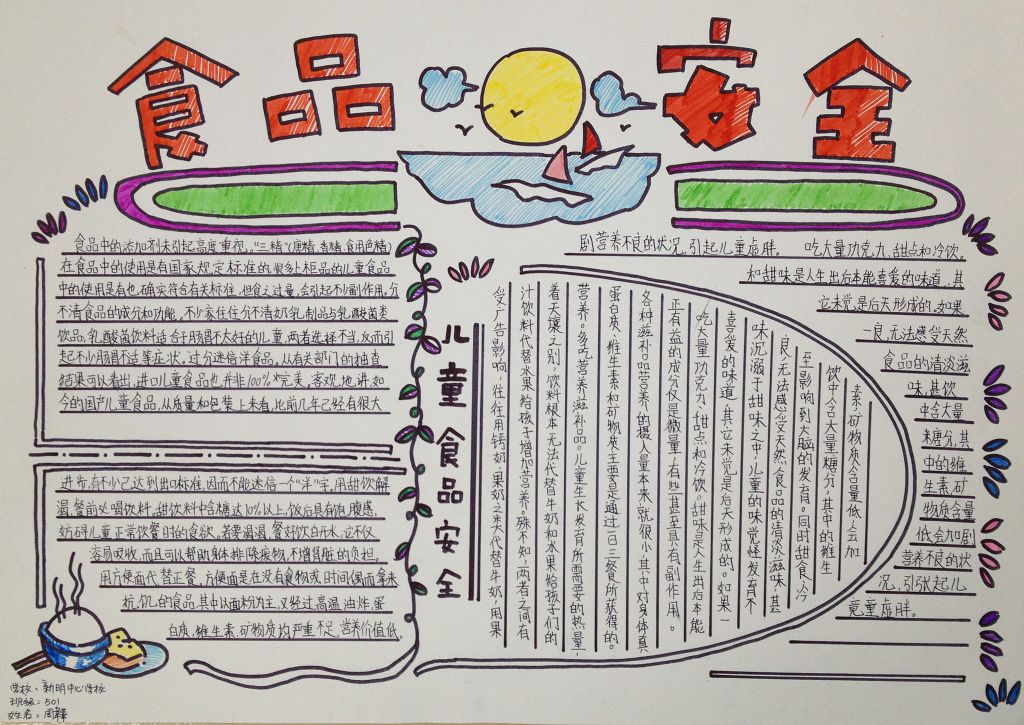 食品安全
食品中的添加剂未引起高度重视。“三精”(唐精、香精、食用色精)
在食品中的使用是有国家规定标准的,很多上柜品的儿童食品
中的使用是有也确实符合有关标准,但食之过量,会引起不少副作用。分
不清食品的成分和功能。不少家住住分不清奶乳制品与乳酸菌类
饮品,乳酸菌饮料适合于肠胃不太好的儿童,两者选择不当,反而引
起不少肠胃不适等症状。过分迷信洋食品。从有关部门的抽查
结果可以看出,进口儿童食品也并非100%完美,客观地讲,如
今的国产儿童食品,从质量和包装上来看,比前几年己经有很大
进步,有不少己达到出口标准,因而不能迷信一个“洋”字。用甜饮解
渴,餐前必喝饮料,甜饮料中含糖达10%以上,饭后具有饱腹感,
妨碍儿童正常饮餐时的食欲,若要渴渴,餐好饮白开水,它不仅
容易吸收,而且可以帮助身体排除废物,不增肾脏的负担。
用方便面代替正餐。方便面是在没有食物或时间偶而拿来
抗饥的食品,其中以面粉为主,又经过高温油炸,蛋
白质,维生素,矿物质均严重不足,营养价值低,
儿童食品安全
剧营养不良的状况,引起儿童虚胖。 吃大量功克力、甜点和冷饮。
和甜味是人生出后本能喜爱的味道,其
它未觉是后天形成的。如果
一良,无法感受天然
食品的清淡滋
味,甚饮
中含大量
来糖分,其
中的维
生素,矿
物质含量
低会加剧
营养不良的状
况,引张起儿
竟童虚胖。
受广告影响,往往用钙奶、果奶之未代替牛奶,用果
汁饮料代替水果给孩子增加营养。殊不知,两者之间有
着天壤之别,饮料根本无法代替牛奶和水果给孩子们的
营养。多吃营养滋补品。儿童生长发育所需要的热量,
蛋白质、维生素和矿物质主要是通过一日三餐所获得的。
各种滋补品营养的摄入量本来就很小,其中对身体真
正有益的成分仅是微量,有些甚至具有副作用。
吃大量功克力、甜点和冷饮。甜味是人生出后本能
喜爱的味道,其它未觉是后天形成的。如果一
良,无法感受天然食品的清淡滋味,甚
味沉溺于甜味之中,儿童的味觉怪发育不
至影响到大脑的发育。同时甜食、冷
饮中含大量糖分,其中的维生
素,矿物质含量低,会加
学校:新明中心学校
班级:501
姓名:周